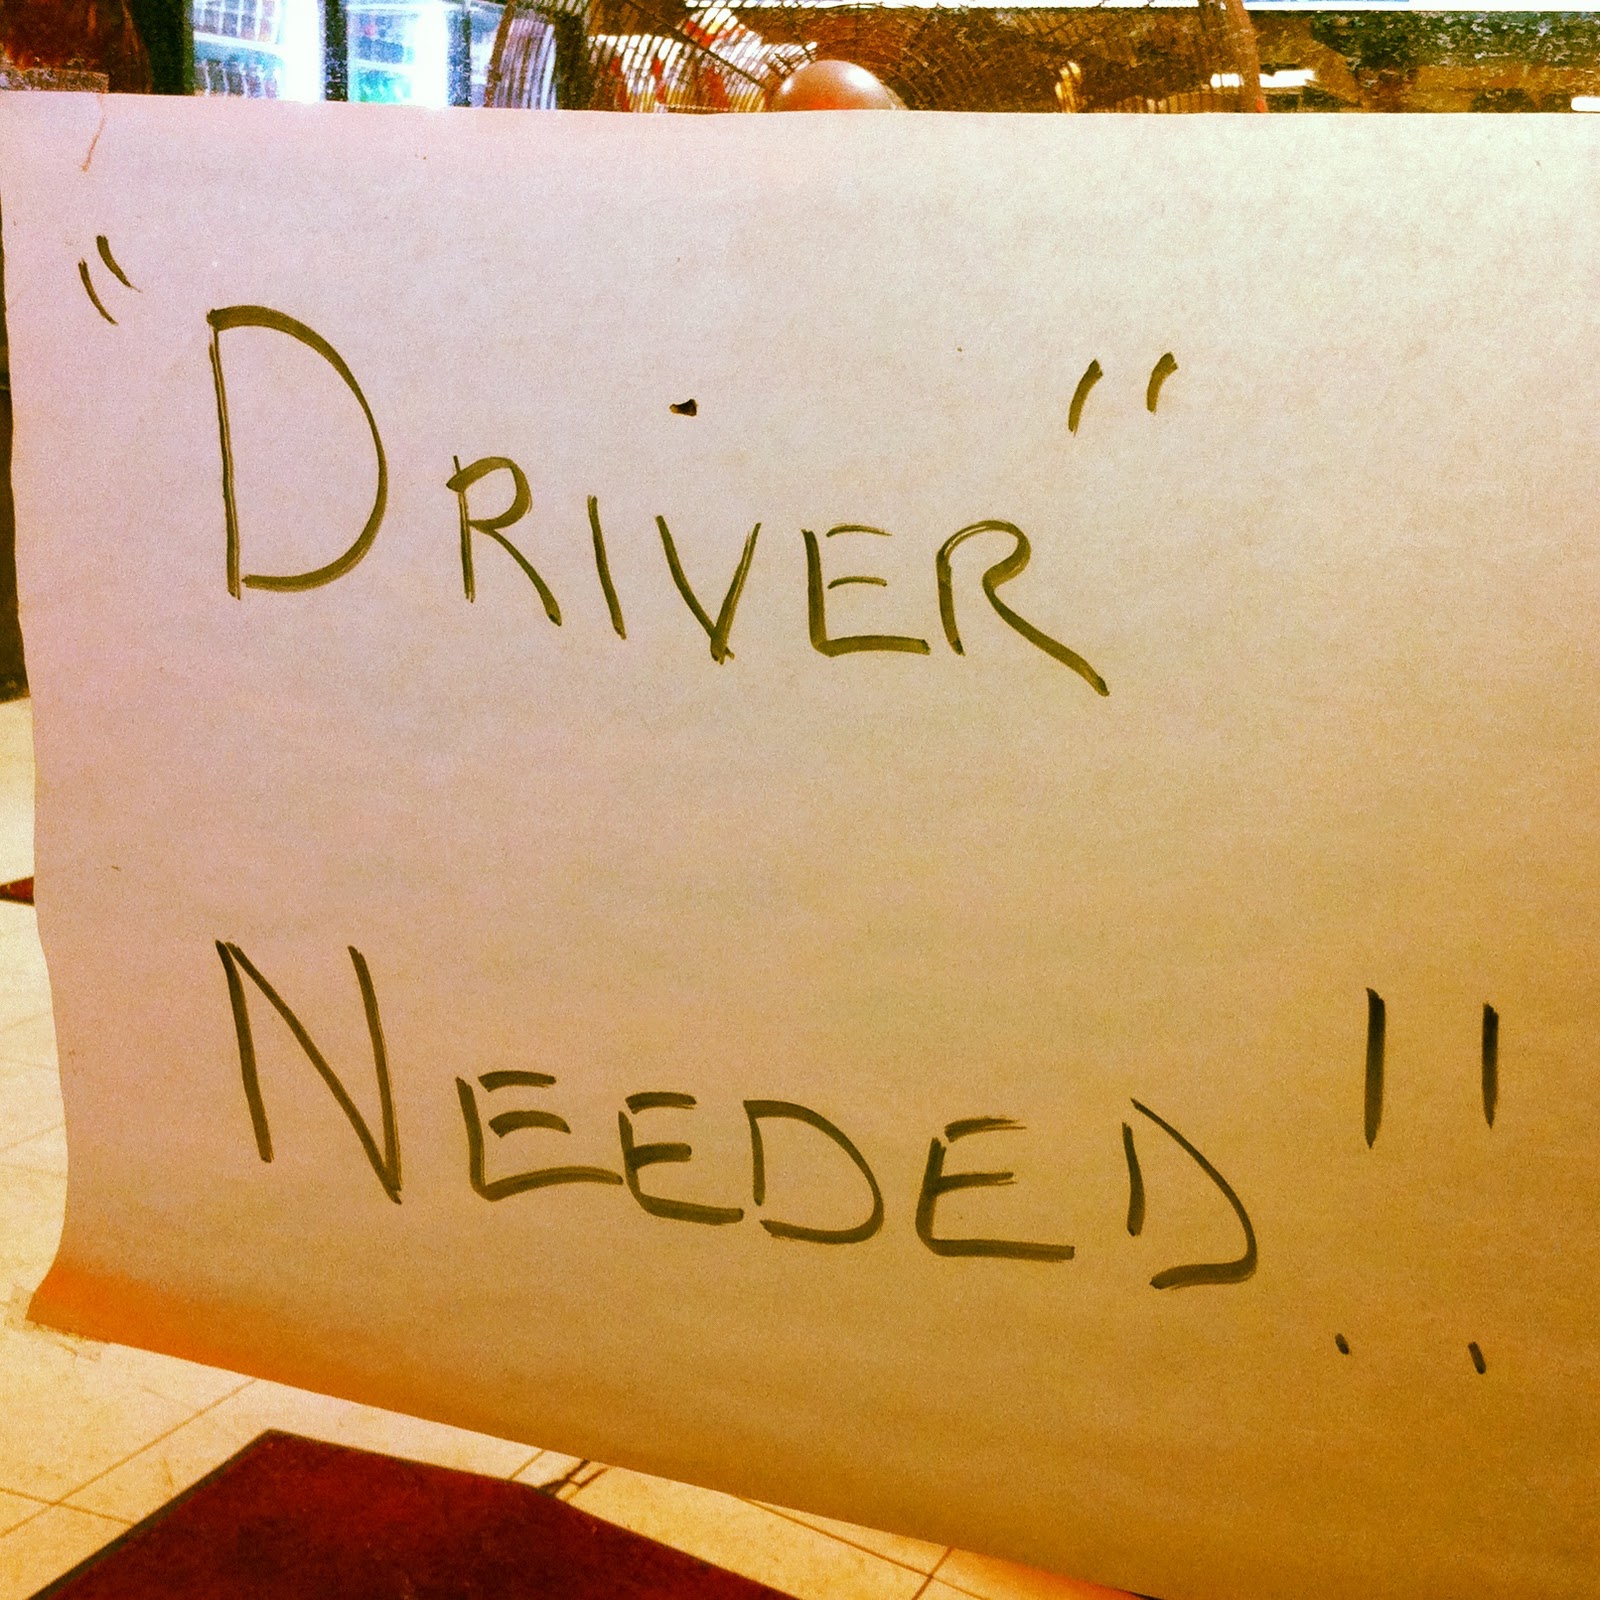 "DRIVER"
NEEDED!!